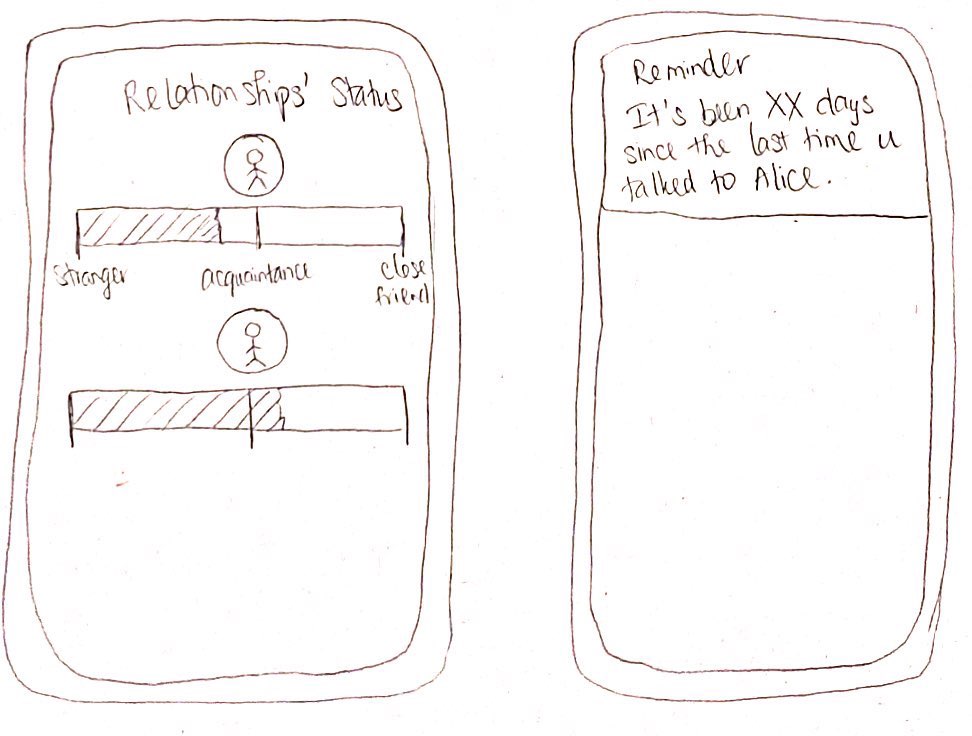 Relationships' Status
stranger
acquaintance
close
friend
Reminder
It's been XX days
since the last time u
talked to Alice.